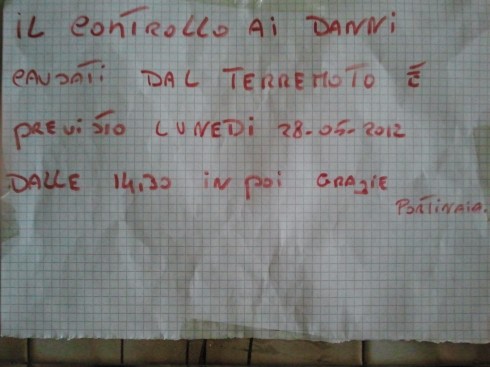 iL CONTROLLO Ai DANNi
CAUSATI DAL TERREMOTO È
PREVISTO LUNEDÌ 28-05-2012
DALLE 14,30 in poi GRAZIE
PORTINAIA.